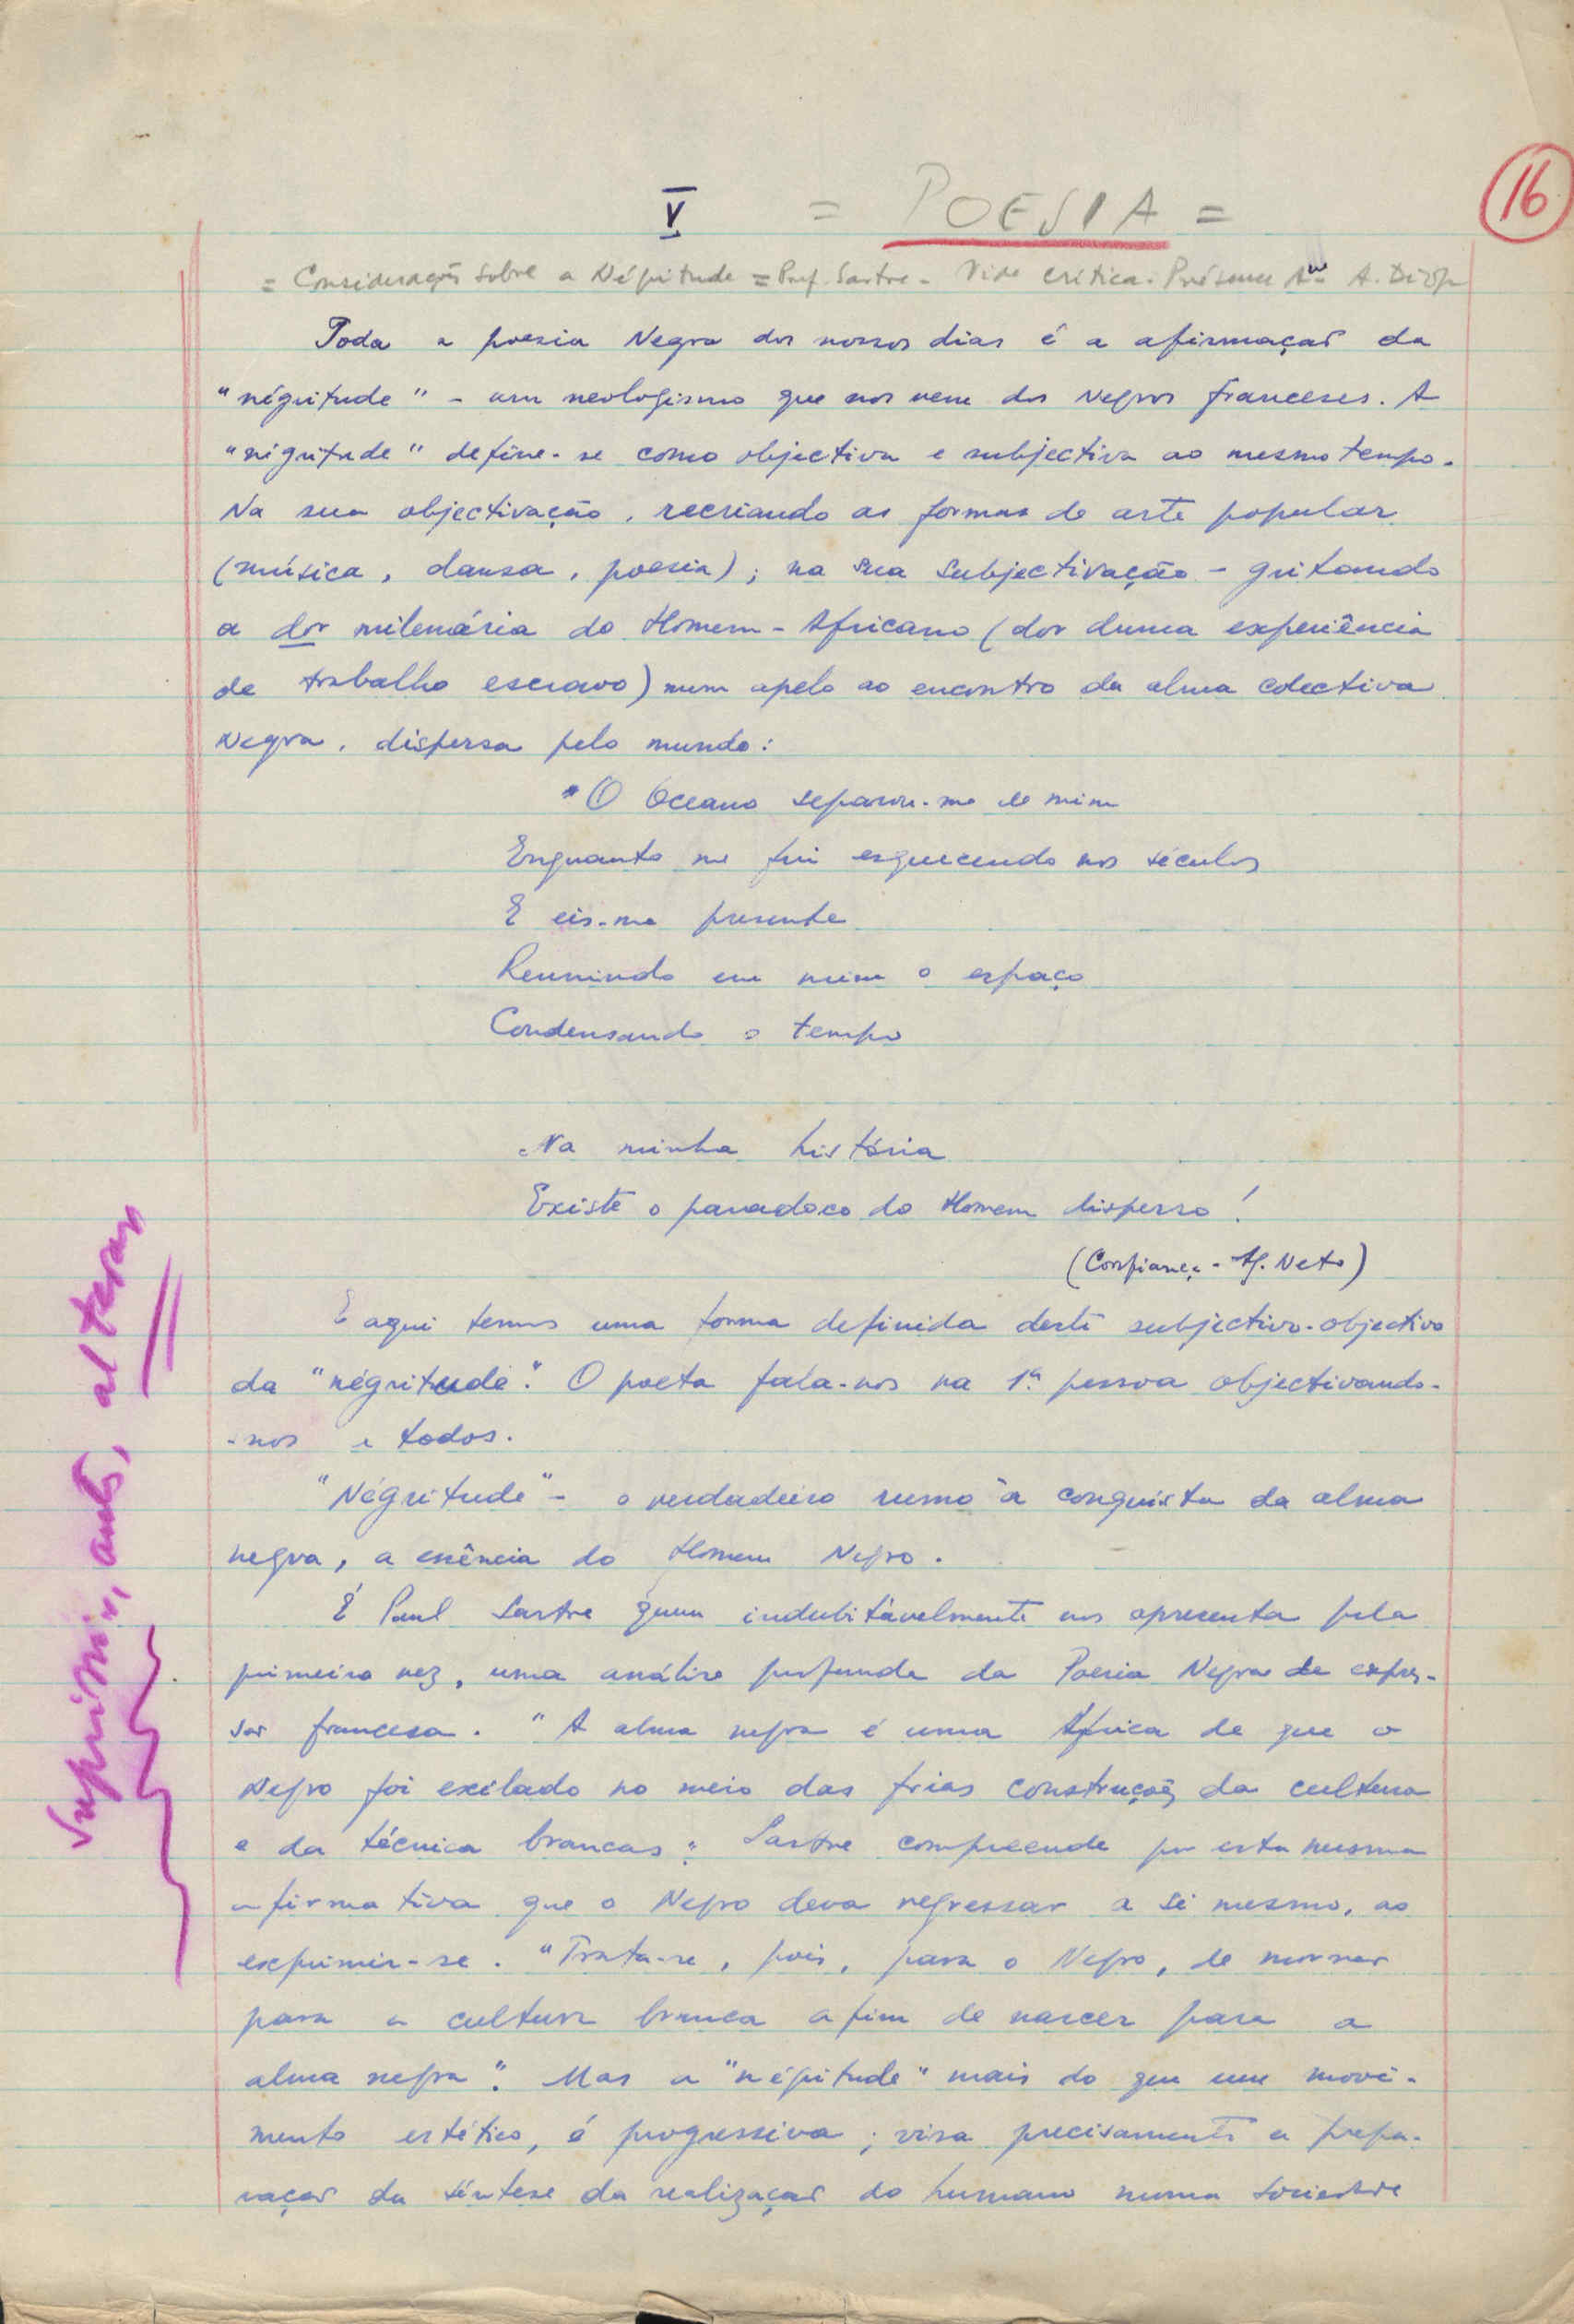 16
V = POESIA =
= Considerações sobre a Négritude = Pref. Sartre - Vide crítica. Présence A. Diop
Toda a poesia Negra dos nossos dias é a afirmação da
"négritude" - um neologismo que nos vem dos Negros franceses. A
"nigritude" define-se como objectiva e subjectiva ao mesmo tempo.
Na sua objectivação, recriando as formas de arte popular
(música, dansa, poesia); na sua subjectivação - gritando
a dor milenária do Homem-Africano (dor duma experiência
de trabalho escravo) num apelo ao encontro da alma colectiva
Negra, dispersa pelo mundo:
"O Oceano separou-me de mim
Enquanto me fui esquecendo nos séculos
E eis-me presente
Reunindo em mim o espaço
Condensando o tempo
Na minha história
Existe o paradoxo do Homem disperso!
(Confiança - A. Neto)
E aqui temos uma forma definida deste subjectivo-objectivo
da "négritude". O poeta fala-nos na 1ª pessoa objectivando-
-nos a todos.
"Négritude" - o verdadeiro rumo à conquista da alma
negra, a essência do Homem Negro.
É Paul Sartre quem indubitàvelmente nos apresenta pela
primeira vez, uma análise profunda da Poesia Negra de expres-
são francesa. "A alma negra é uma África de que o
Negro foi exilado no meio das frias construções da cultura
e da técnica brancas". Sartre compreende por esta mesma
afirmativa que o Negro deva regressar a si mesmo, ao
exprimir-se. "Trata-se, pois, para o Negro, de morrer
para a cultura branca a fim de nascer para a
alma negra". Mas a "négritude" mais do que um movi-
mento estético, é progressiva; visa precisamente a prepa-
ração da síntese da realização do humano numa sociedade
Suprimir, ants, alterar